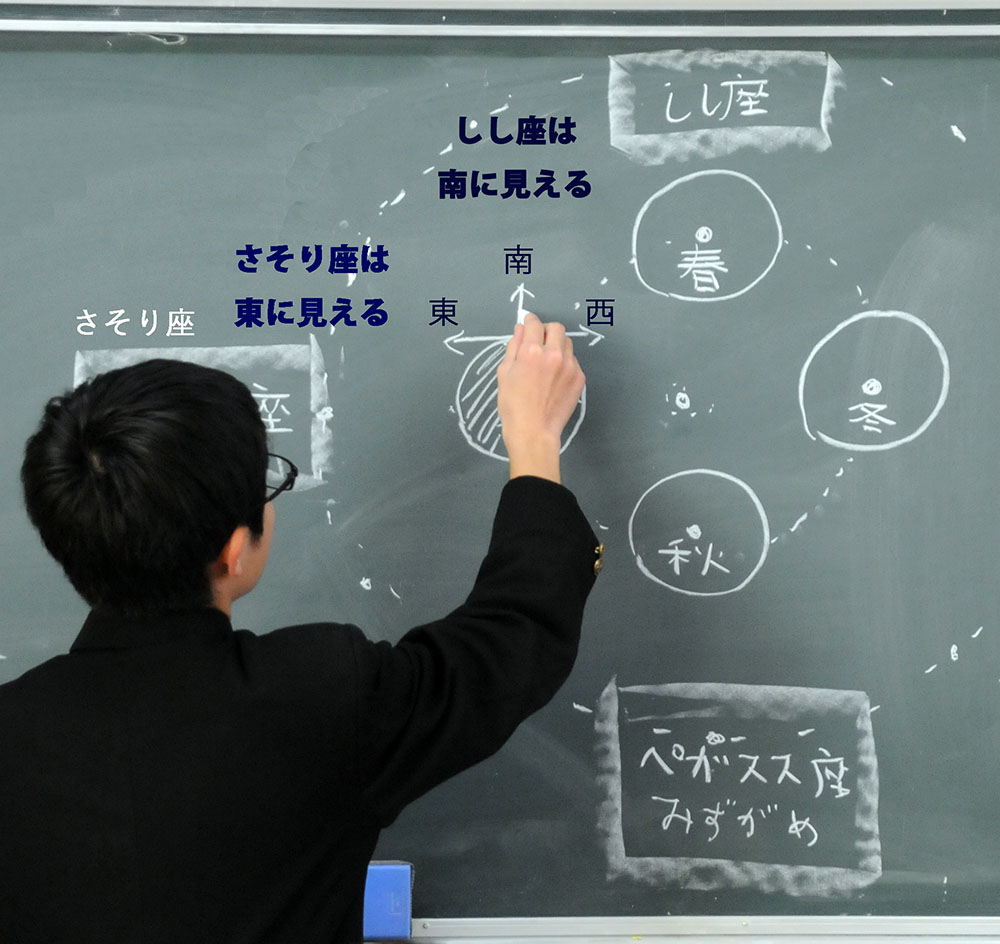 しし座
しし座は
南に見える
さそり座は
東に見える
南
東
西
さそり座
座
春
冬
秋
ペガスス座
みずがめ